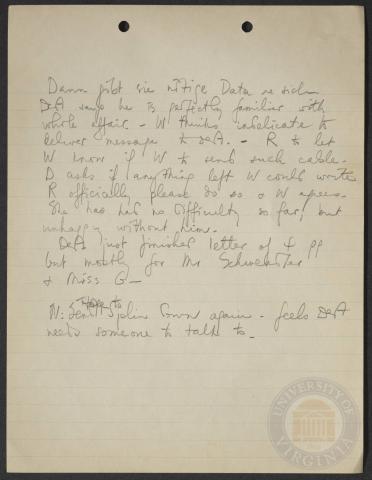 Dann gibt sie nötige Data re sich
DeA says he is perfectly familiar with
whole affair - W thinks indelicate to
deliver message to DeA. - R to let
W know if W to send such cable.
D asks if anything left W could write
R officially please do so & W agrees.
She has had no difficulty so far, but
unhappy without him.
DeA just finished letter of 4 pp
but mostly for Mr
& Miss G—
W: Sent down again - feels DeA
needs someone to talk to -
UNIVERSITY OF
VIRGINIA